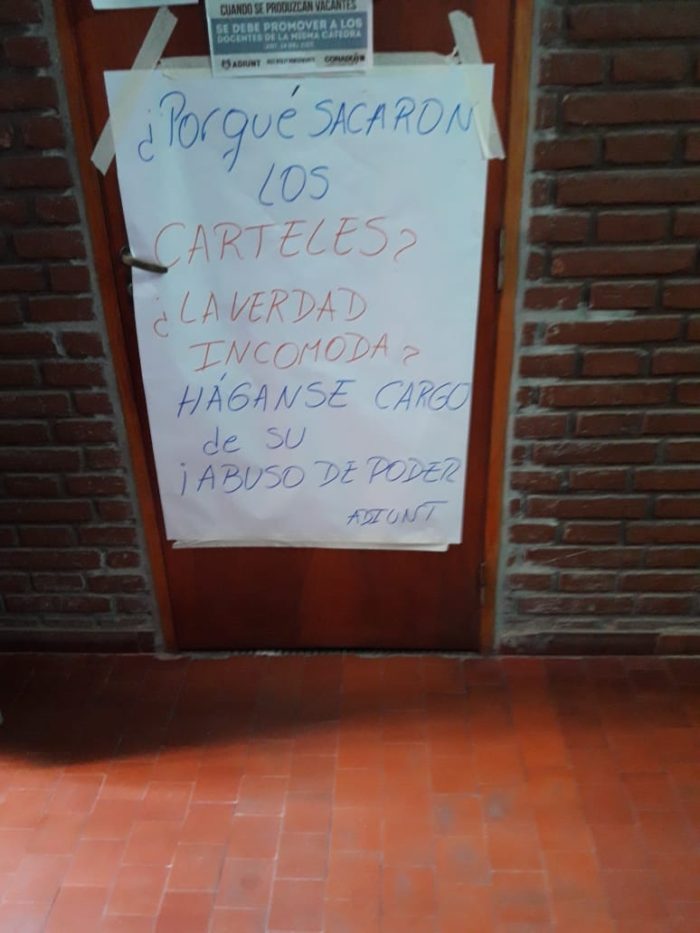 CUANDO SE PRODUZCAN VACANTES
SE DEBE PROMOVER A LOS
DOCENTES DE LA MISMA CÁTEDRA
ADIUNT
CONADU
¿Porqué SACARON
LOS
CARTELES?
¿LA VERDAD
INCOMODA?
HÁGANSE CARGO
de SU
¡ABUSO DE PODER
ADIUNT